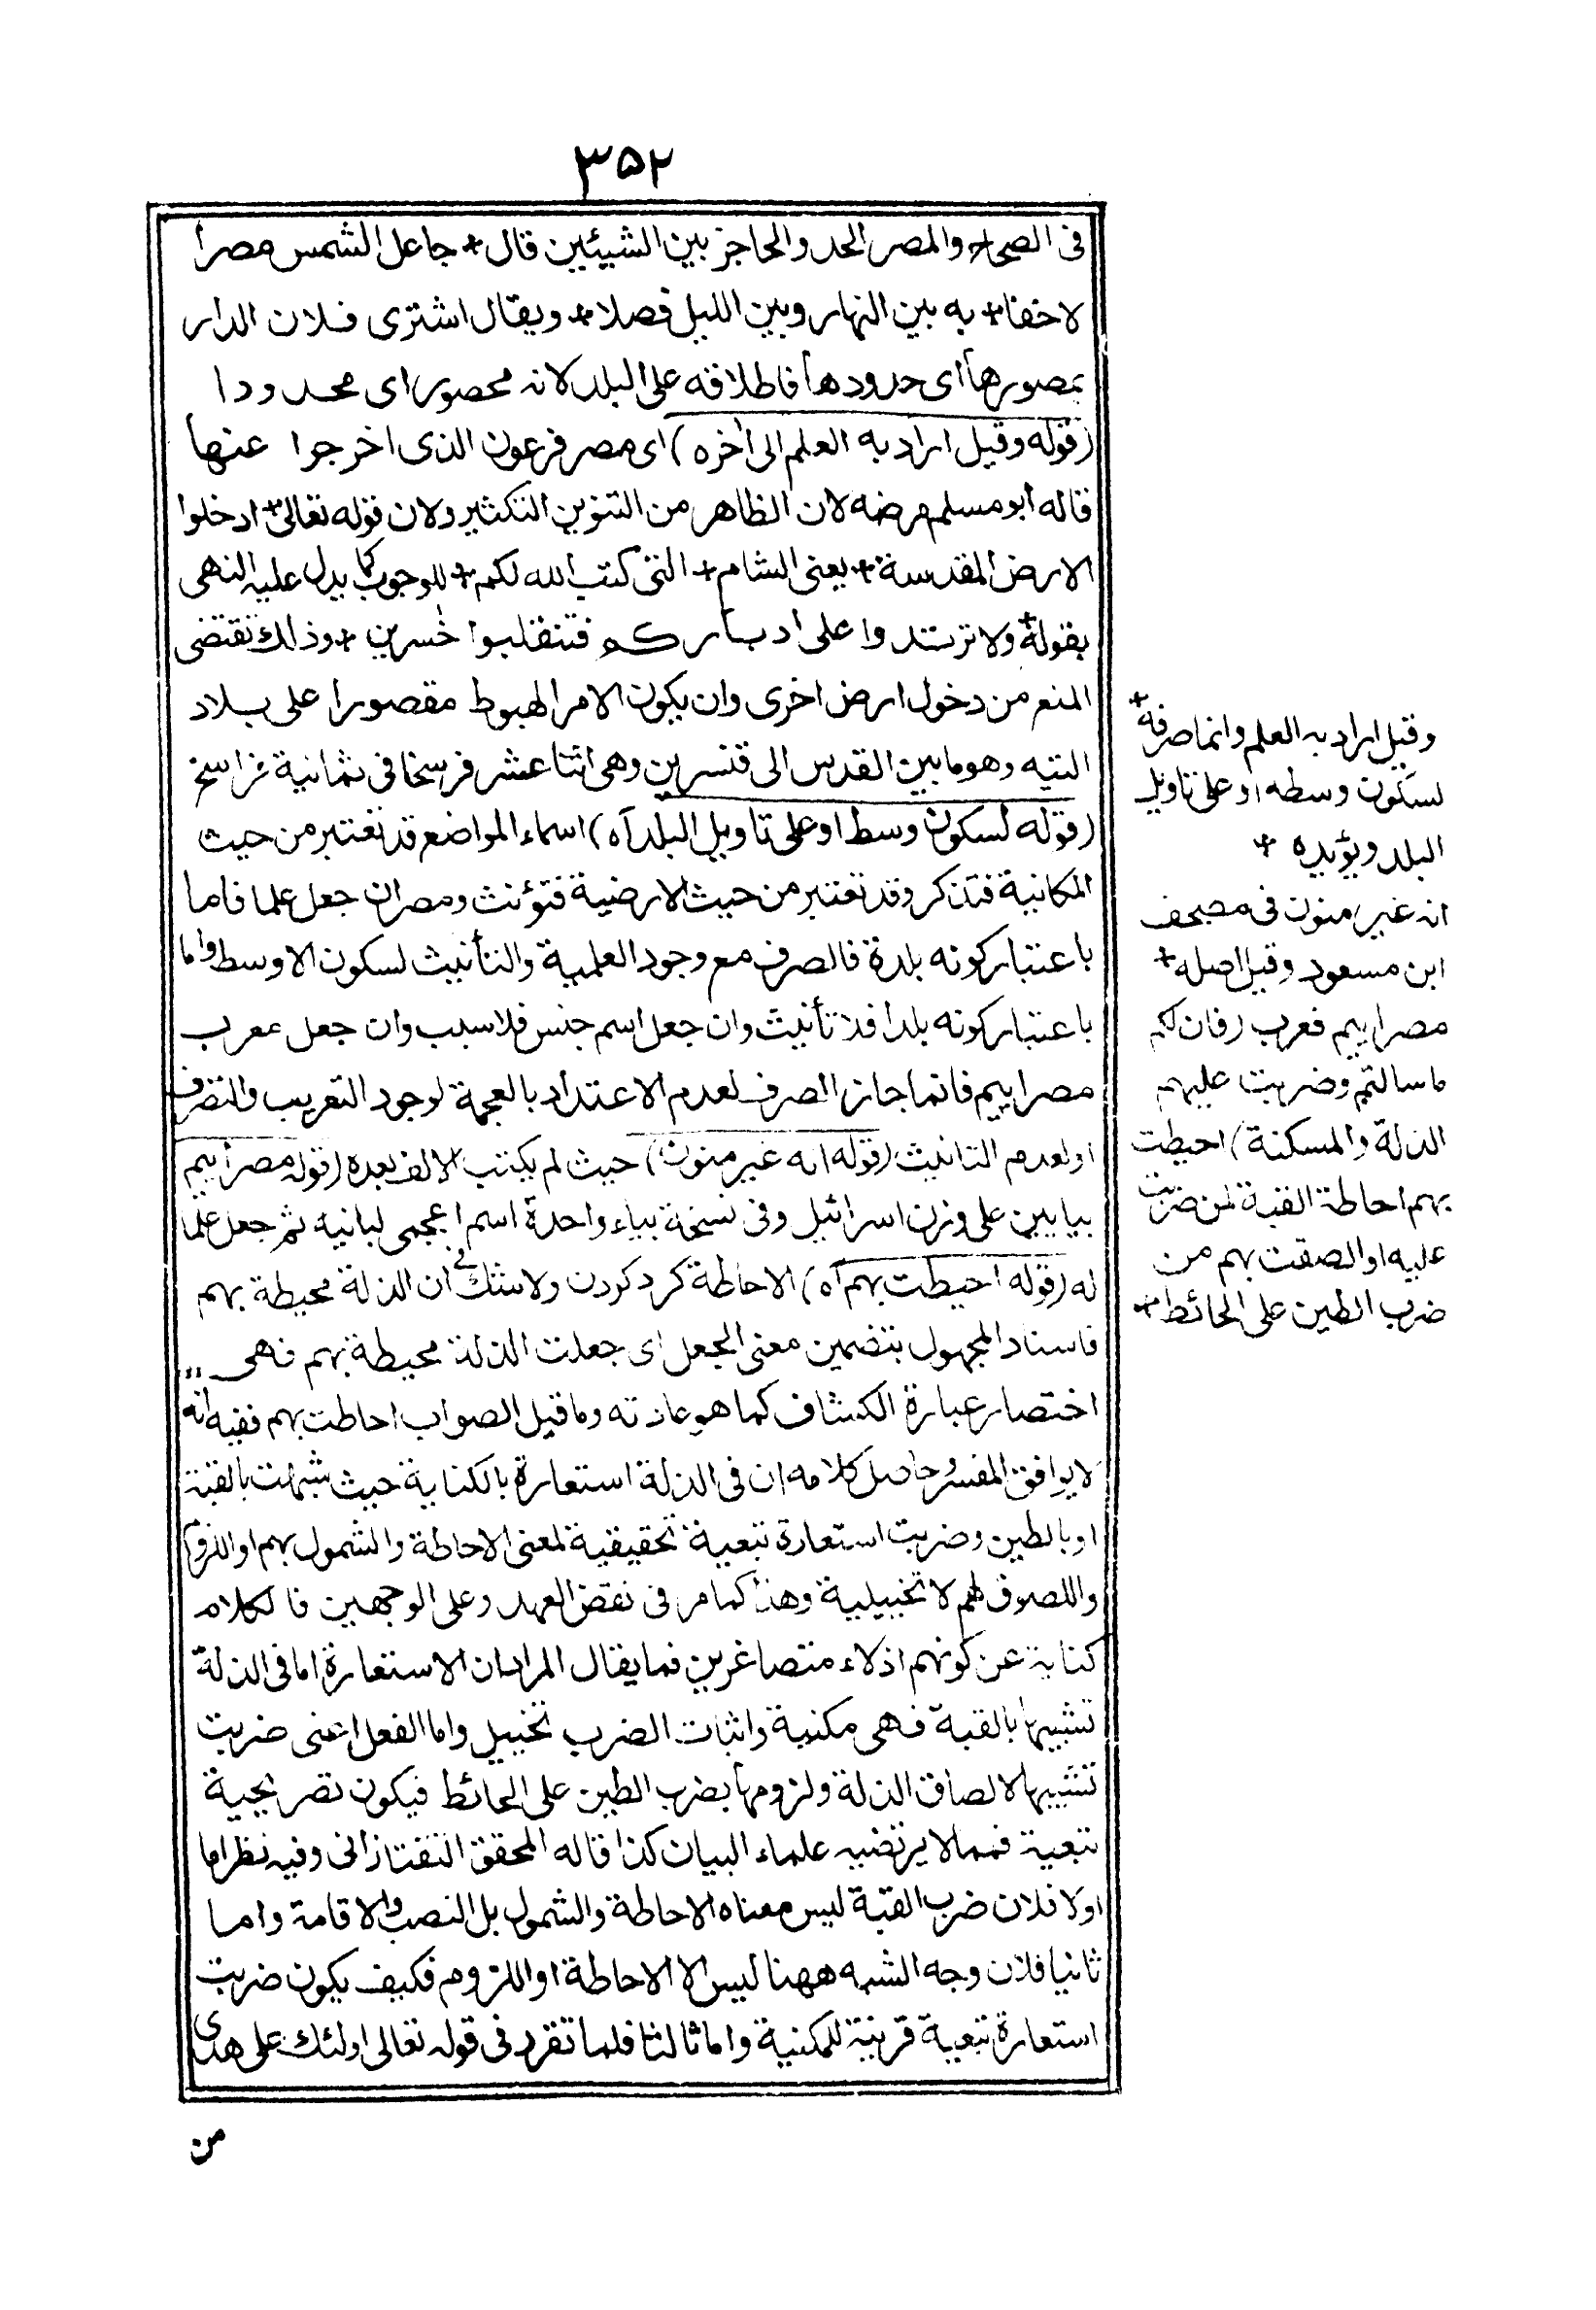 ۳۵۲
فى الصحاح والمصر الحد والحاجز بين الشيئين قال + جاعل الشمس مصرا
لاخفاء + به بين النهار وبين الليل فصلا + ويقال اشترى فلان الدار
بمصورها اى حدودها فاطلاقه على البلد لانه محصور اى محدودا
(قوله وقيل اراد به العلم الى اخره) اى مصر فرعون الذى اخرجوا عنها
قاله ابو مسلم مرضه لان الظاهر من التنوين التكثير ولان قوله تعالى + ادخلوا
الارض المقدسة + يعنى الشام + التى كتب الله لكم + للوجوب كما يدل عليه النهى
بقوله + ولا ترتدوا على ادباركم فتنقلبوا خٰسرين + وذلك تقتضى
المنع من دخول ارض اخرى وان يكون الامر الهبوط مقصورا على بلاد
التيه وهو ما بين القدس الى قنسرين وهى اثنا عشر فرسخا فى ثمانية غراسخ
(قوله لسكون وسط او على تاويل البلد آه) اسماء المواضع قد تعتبر من حيث
المكانية فتذكر وقد تعتبر من حيث الارضية فتؤنث ومصر ان جعل علما فاما
باعتبار كونه بلدة فالصرف مع وجود العلمية والتأنيث لسكون الاوسط واما
باعتبار كونه بلدا فلا تأنيث وان جعل اسم جنس فلا سبب وان جعل معرب
مصراييم فانما جاز الصرف لعدم الاعتداد بالعجمة لوجود التعريب والتصرف
او لعدم التانيث (قوله انه غير منون) حيث لم يكتب الالف بعده (قوله مصراييم
بيايين على وزن اسرائيل وفى نسخة بياء واحدة اسم اعجمى لبانيه ثم جعل علما
له (قوله احيطت بهم آه) الاحاطة كرد كردن ولا شك فى ان الذلة محيطة بهم
فاسناد المجهول بتضمين معنى الجعل اى جعلت الذلة محيطة بهم فهى
اختصار عبارة الكشاف كما هو عادته وما قيل الصواب احاطت بهم ففيه انه
لا يوافق المفسر وحاصل كلامه ان فى الذلة استعارة بالكناية حيث شبهت بالقبة
او بالطين وضربت استعارة تبعية تحقيقية لمعنى الاحاطة والشمول بهم او اللزوم
واللصوق لهم لا تخييلية وهذا كما مر فى نقض العهد وعلى الوجهين فالكلام
كناية عن كونهم اذلاء متصاغرين فما يقال المراد ان الاستعارة اما فى الذلة
تشبيها بالقبة فهى مكنية واثبات الضرب تخييل واما الفعل اعنى ضربت
تشبيها لالصاق الذلة ولزومها بضرب الطين على الحائط فيكون تصريحية
تبعية فمما لا يرتضيه علماء البيان كذا قاله المحقق التفتازانى وفيه نظر اما
اولا فلان ضرب القبة ليس معناه الاحاطة والشمول بل النصب والاقامة واما
ثانيا فلان وجه الشبه ههنا ليس الا الاحاطة او اللزوم فكيف يكون ضربت
استعارة تبعية قرينة للمكنية واما ثالثا فلما تقرر فى قوله تعالى اولئك على هدى
من
وقيل اراد به العلم وانما صرفه +
لسكون وسطه او على تاويل
البلد ويؤيده +
انه غير منون فى مصحف
ابن مسعود وقيل اصله +
مصراييم فعرب (فان لكم
ما سالتم وضربت عليهم
الذلة والمسكنة) احيطت
بهم احاطة القبة لمن ضربت
عليه او الصقت بهم من
ضرب الطين على الحائط +